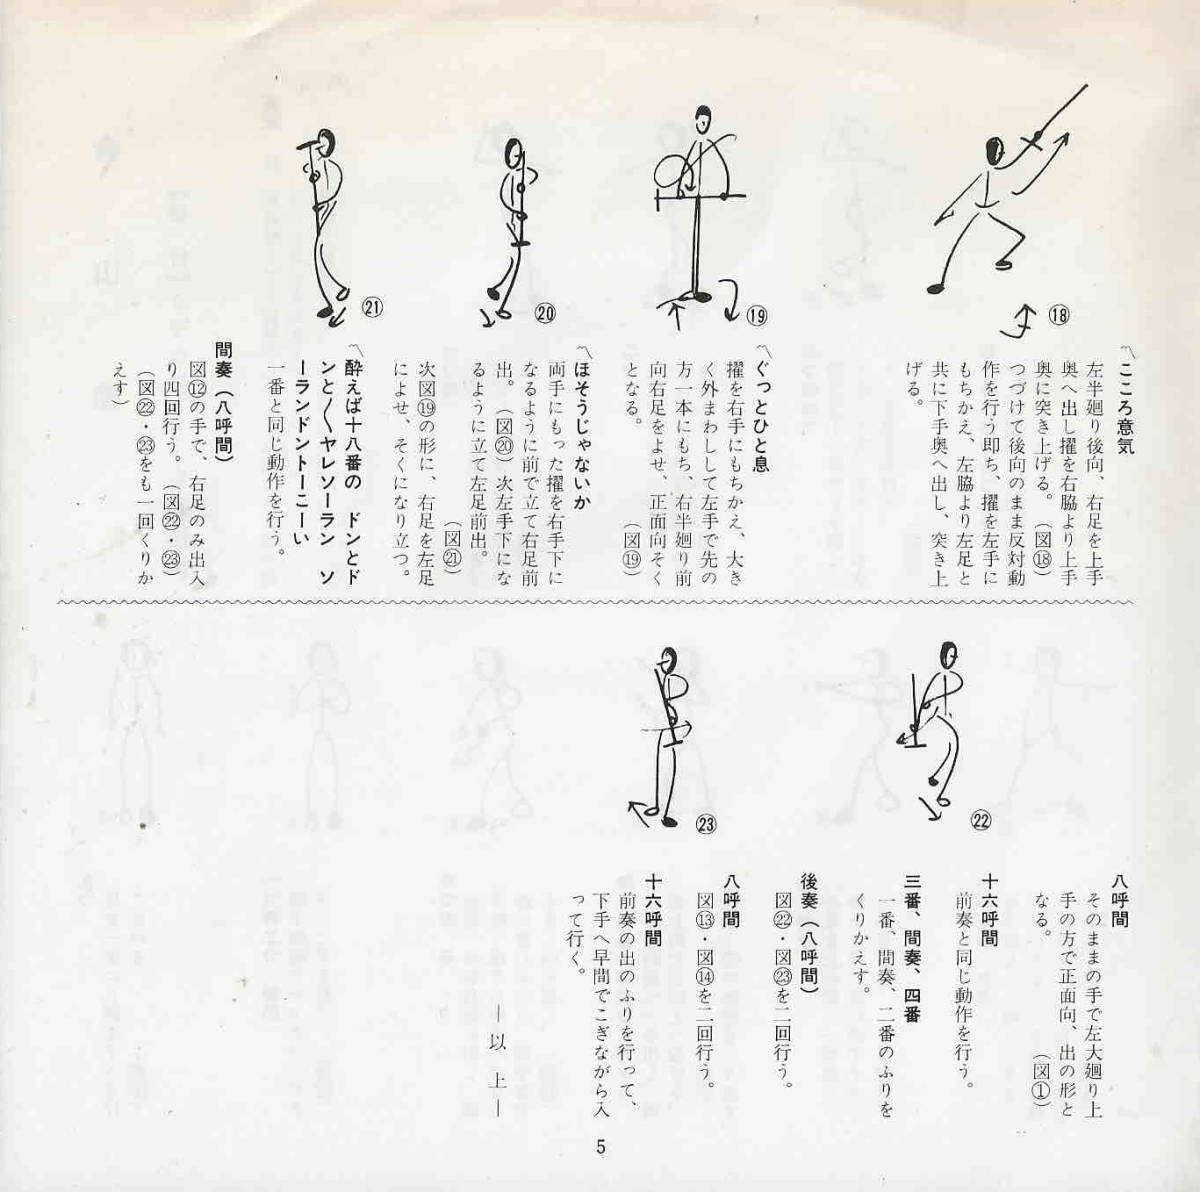 ⑱
⑲
⑳
㉑
〽こころ意気
左半廻り後向、右足を上手
奥へ出し擢を右脇より上手
奥に突き上げる。（図⑱）
つづけて後向のまま反対動
作を行う即ち、擢を左手に
もちかえ、左脇より左足と
共に下手奥へ出し、突き上
げる。
〽ぐっとひと息
擢を右手にもちかえ、大き
く外まわしして左手で先の
方一本にもち、右半廻り前
向右足をよせ、正面向そく
となる。（図⑲）
〽ほそうじゃないか
両手にもった擢を右手下に
なるように前で立て右足前
出。（図⑳）次左手下にな
るように立て左足前出。
（図㉑）
次図⑲の形に、右足を左足
によせ、そくになり立つ。
〽酔えば十八番の　ドンとド
ンと〳〵ヤレソーラン　ソ
ーランドントーこーい
一番と同じ動作を行う。
間奏（八呼間）
図⑫の手で、右足のみ出入
り四回行う。（図㉒・㉓）
（図㉒・㉓をも一回くりか
えす）
㉒
㉓
八呼間
そのままの手で左大廻り上
手の方で正面向、出の形と
なる。（図①）
十六呼間
前奏と同じ動作を行う。
三番、間奏、四番
一番、間奏、二番のふりを
くりかえす。
後奏（八呼間）
図㉒・図㉓を二回行う。
八呼間
図⑬・図⑭を二回行う。
十六呼間
前奏の出のふりを行って、
下手へ早間でこぎながら入
って行く。
—以上—
5